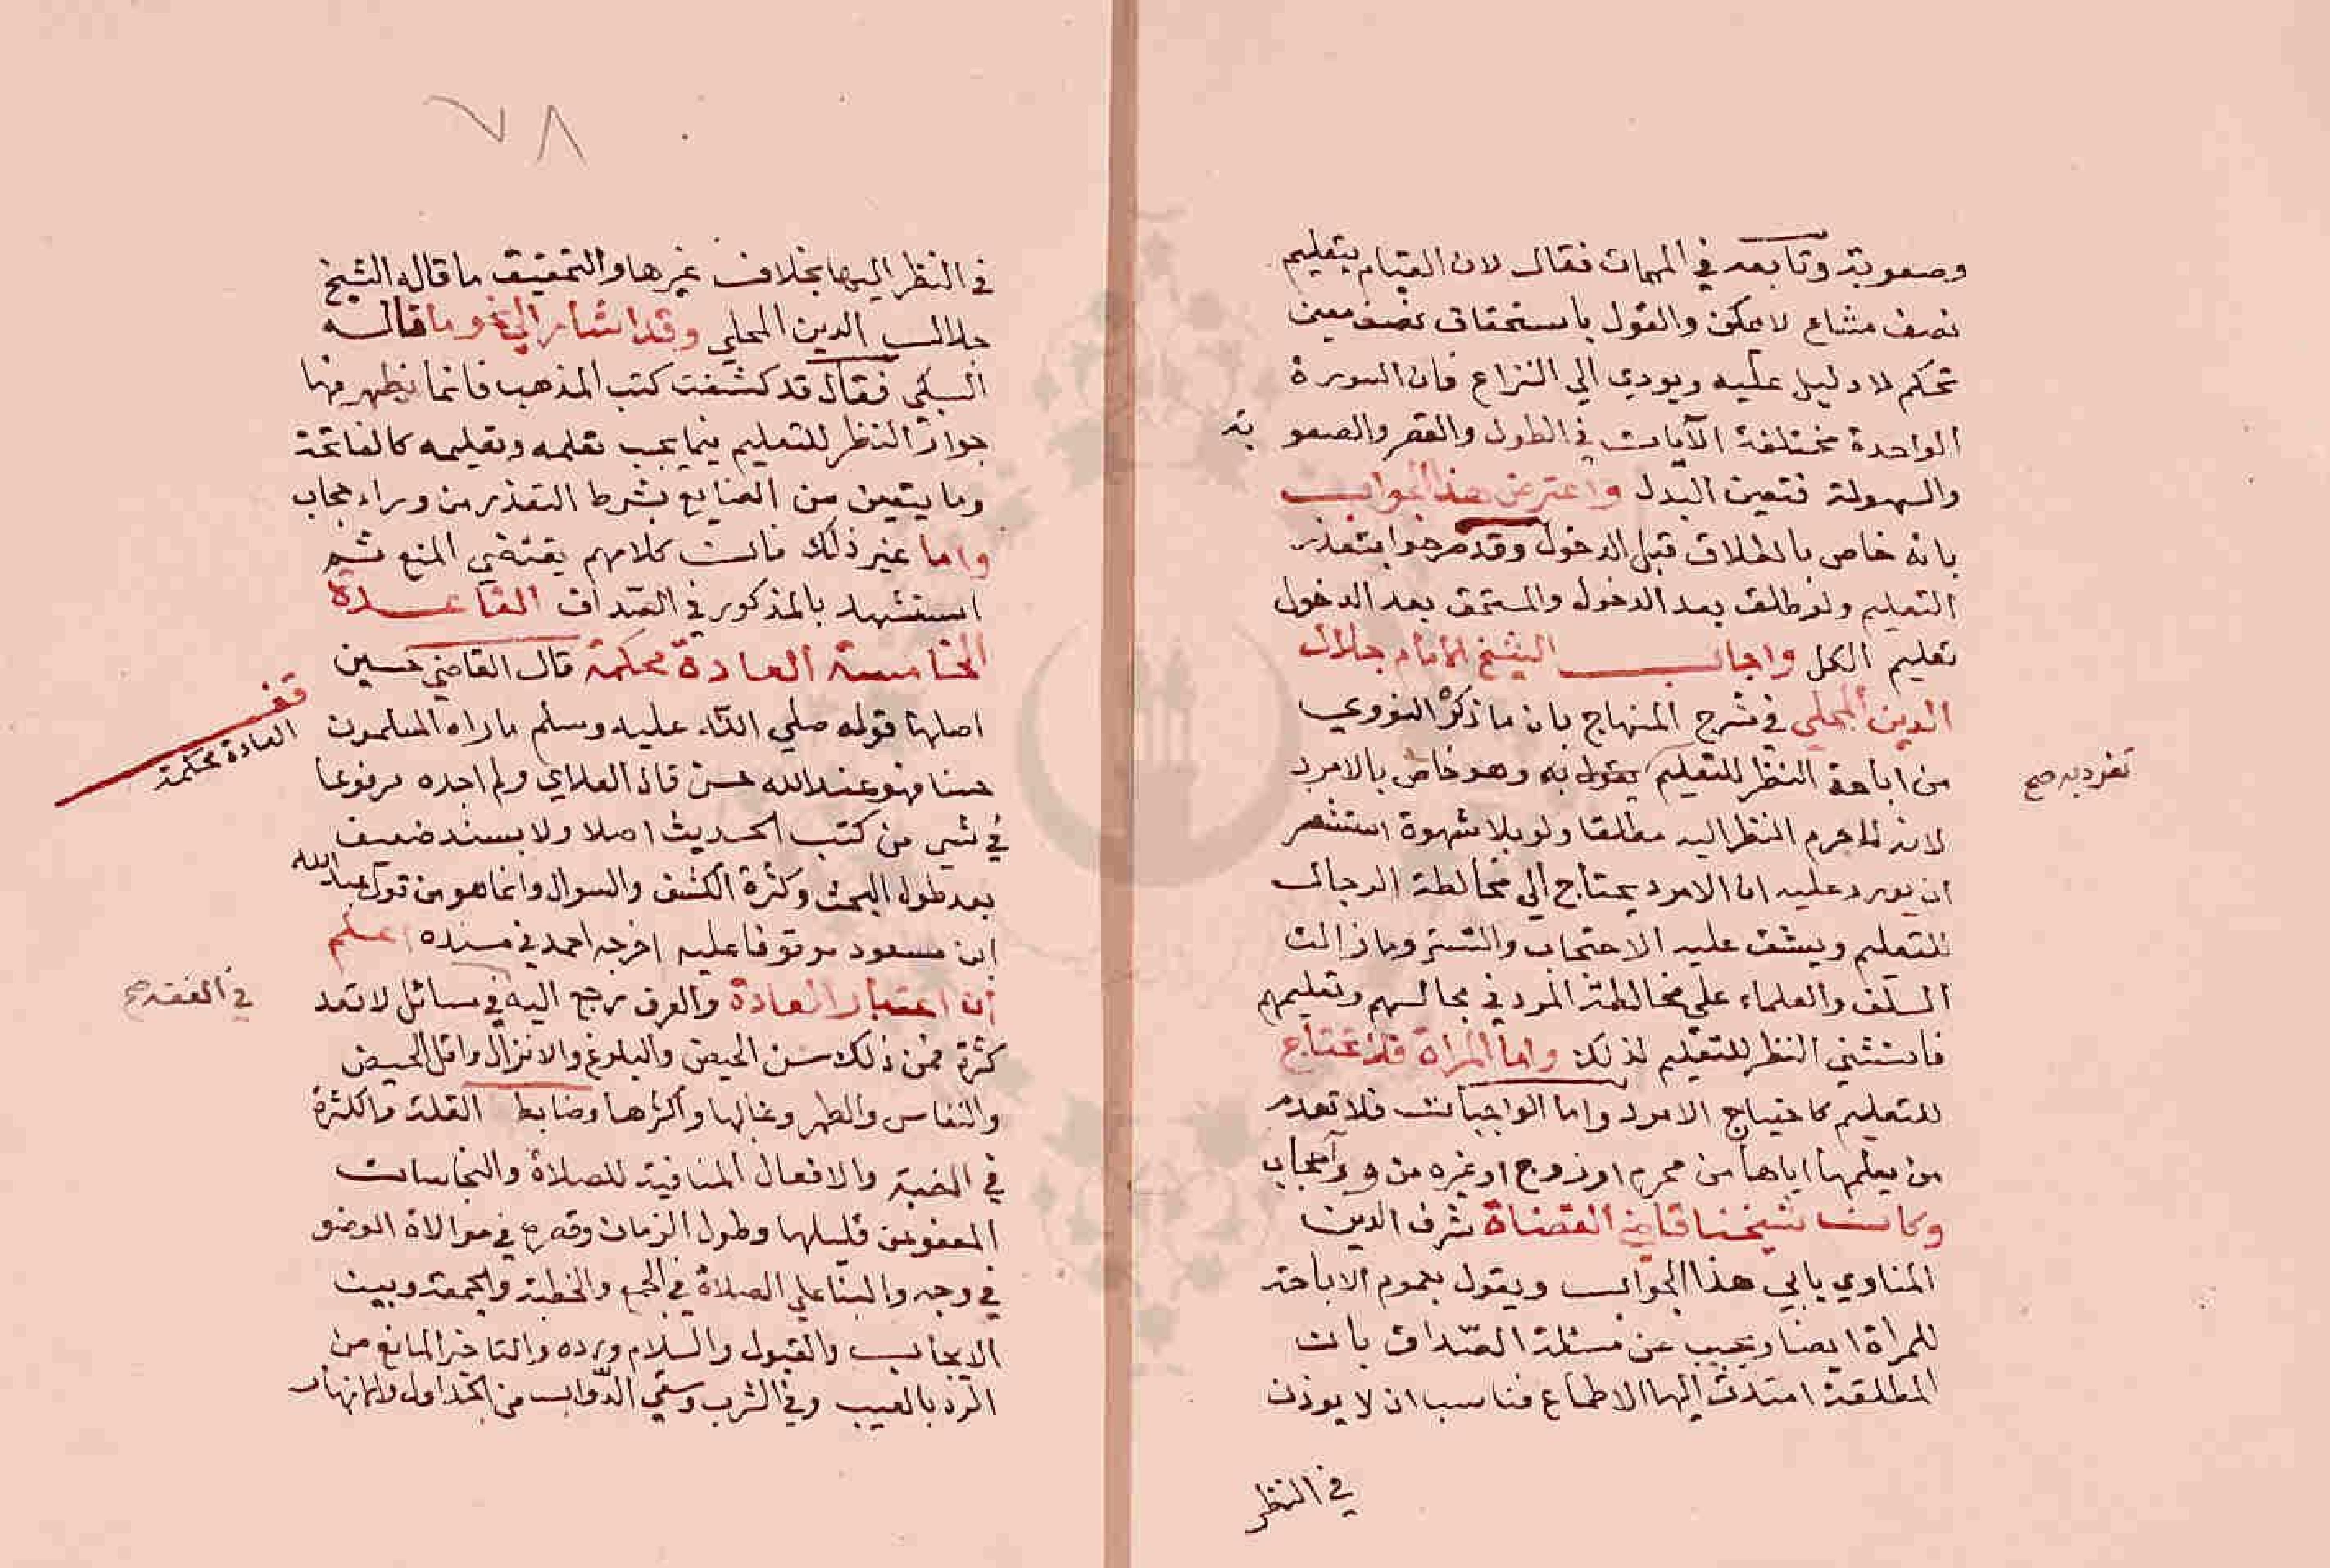 وصعوبة وتابعه في المهمات فقال لان القيام بتعليم
نصف مشاع لا يمكن والقول باستحقاق نصف معين
تحكم لا دليل عليه ويودي الي النزاع فان السورة
الواحدة مختلفة الآيات في الطول والقصر والصعو بة
والسهولة فتعين البدل واعترض هذا الجواب
بانه خاص بالطلاق قبل الدخول وقد صرحوا بتعذر
التعليم ولو طلق بعد الدخول والمستحق بعد الدخول
تعليم الكل واجاب الشيخ الامام جلال
الدين المحلي في شرح المنهاج بان ما ذكره النووي
من اباحة النظر للتعليم يقول به وهو خاص بالامرد
تفرد به صح
لانه لما حرم النظر اليه مطلقا ولو بلا شهوة استشعر
ان يورد عليه ان الامرد يحتاج الي مخالطة الرجال
للتعليم ويشق عليه الاحتجاب والتستر وما زالت
السلف والعلماء علي مخالطة المرد في مجالسهم وتعليمهم
فاستثني النظر للتعليم لذلك واما المراة فلا تحتاج
للتعليم كاحتياج الامرد واما الواجبات فلا تعدم
من يعلمها اياها من محرم او زوج او غيره من ورآ حجاب
وكان شيخنا قاضي القضاة شرف الدين
المناوي يابي هذا الجواب ويقول بعموم الاباحة
للمراة ايضا ويجيب عن مسئلة الصداق بان
المطلقة امتدت اليها الاطماع فناسب ان لا يوذن
في النظر
٧٨
في النظر اليها بخلاف غيرها والتحقيق ما قاله الشيخ
جلال الدين المحلي وقد اشار الي نحو ما قاله
السبكي فقال قد كشفت كتب المذهب فانما يظهر منها
جواز النظر للتعليم فيما يجب تعلمه وتعليمه كالفاتحة
وما يتعين من الصنايع بشرط التعذر من وراء حجاب
واما غير ذلك فان كلامهم يقتضي المنع ثم
استشهد بالمذكور في الصداق القاعدة
الخامسة العادة محكمة قال القاضي حسين
قف
العادة محكمة
اصلها قوله صلي الله عليه وسلم ما راه المسلمون
حسنا فهو عند الله حسن قال العلاي ولم اجده مرفوعا
في شي من كتب الحديث اصلا ولا بسند ضعيف
بعد طول البحث وكثرة الكشف والسوال وانما هو من قول عبد الله
ابن مسعود موقوفا عليه اخرجه احمد في مسنده اعلم
ان اعتبار العادة والعرف رجع اليه في مسائل لا تعد
في الفقه صح
كثرة فمن ذلك سن الحيض والبلوغ والانزال واقل الحيض
والنفاس والطهر وغالبها واكثرها وضابط القلة والكثرة
في الضبة والافعال المنافية للصلاة والنجاسات
المعفو عن قليلها وطول الزمان وقصره في موالاة الوضو
في وجه والبنا علي الصلاة في الجمع والخطبة والجمعة وبين
الايجاب والقبول والسلام ورده والتاخير المانع من
الرد بالعيب وفي الشرب وسقي الدواب من الجداول والانهار